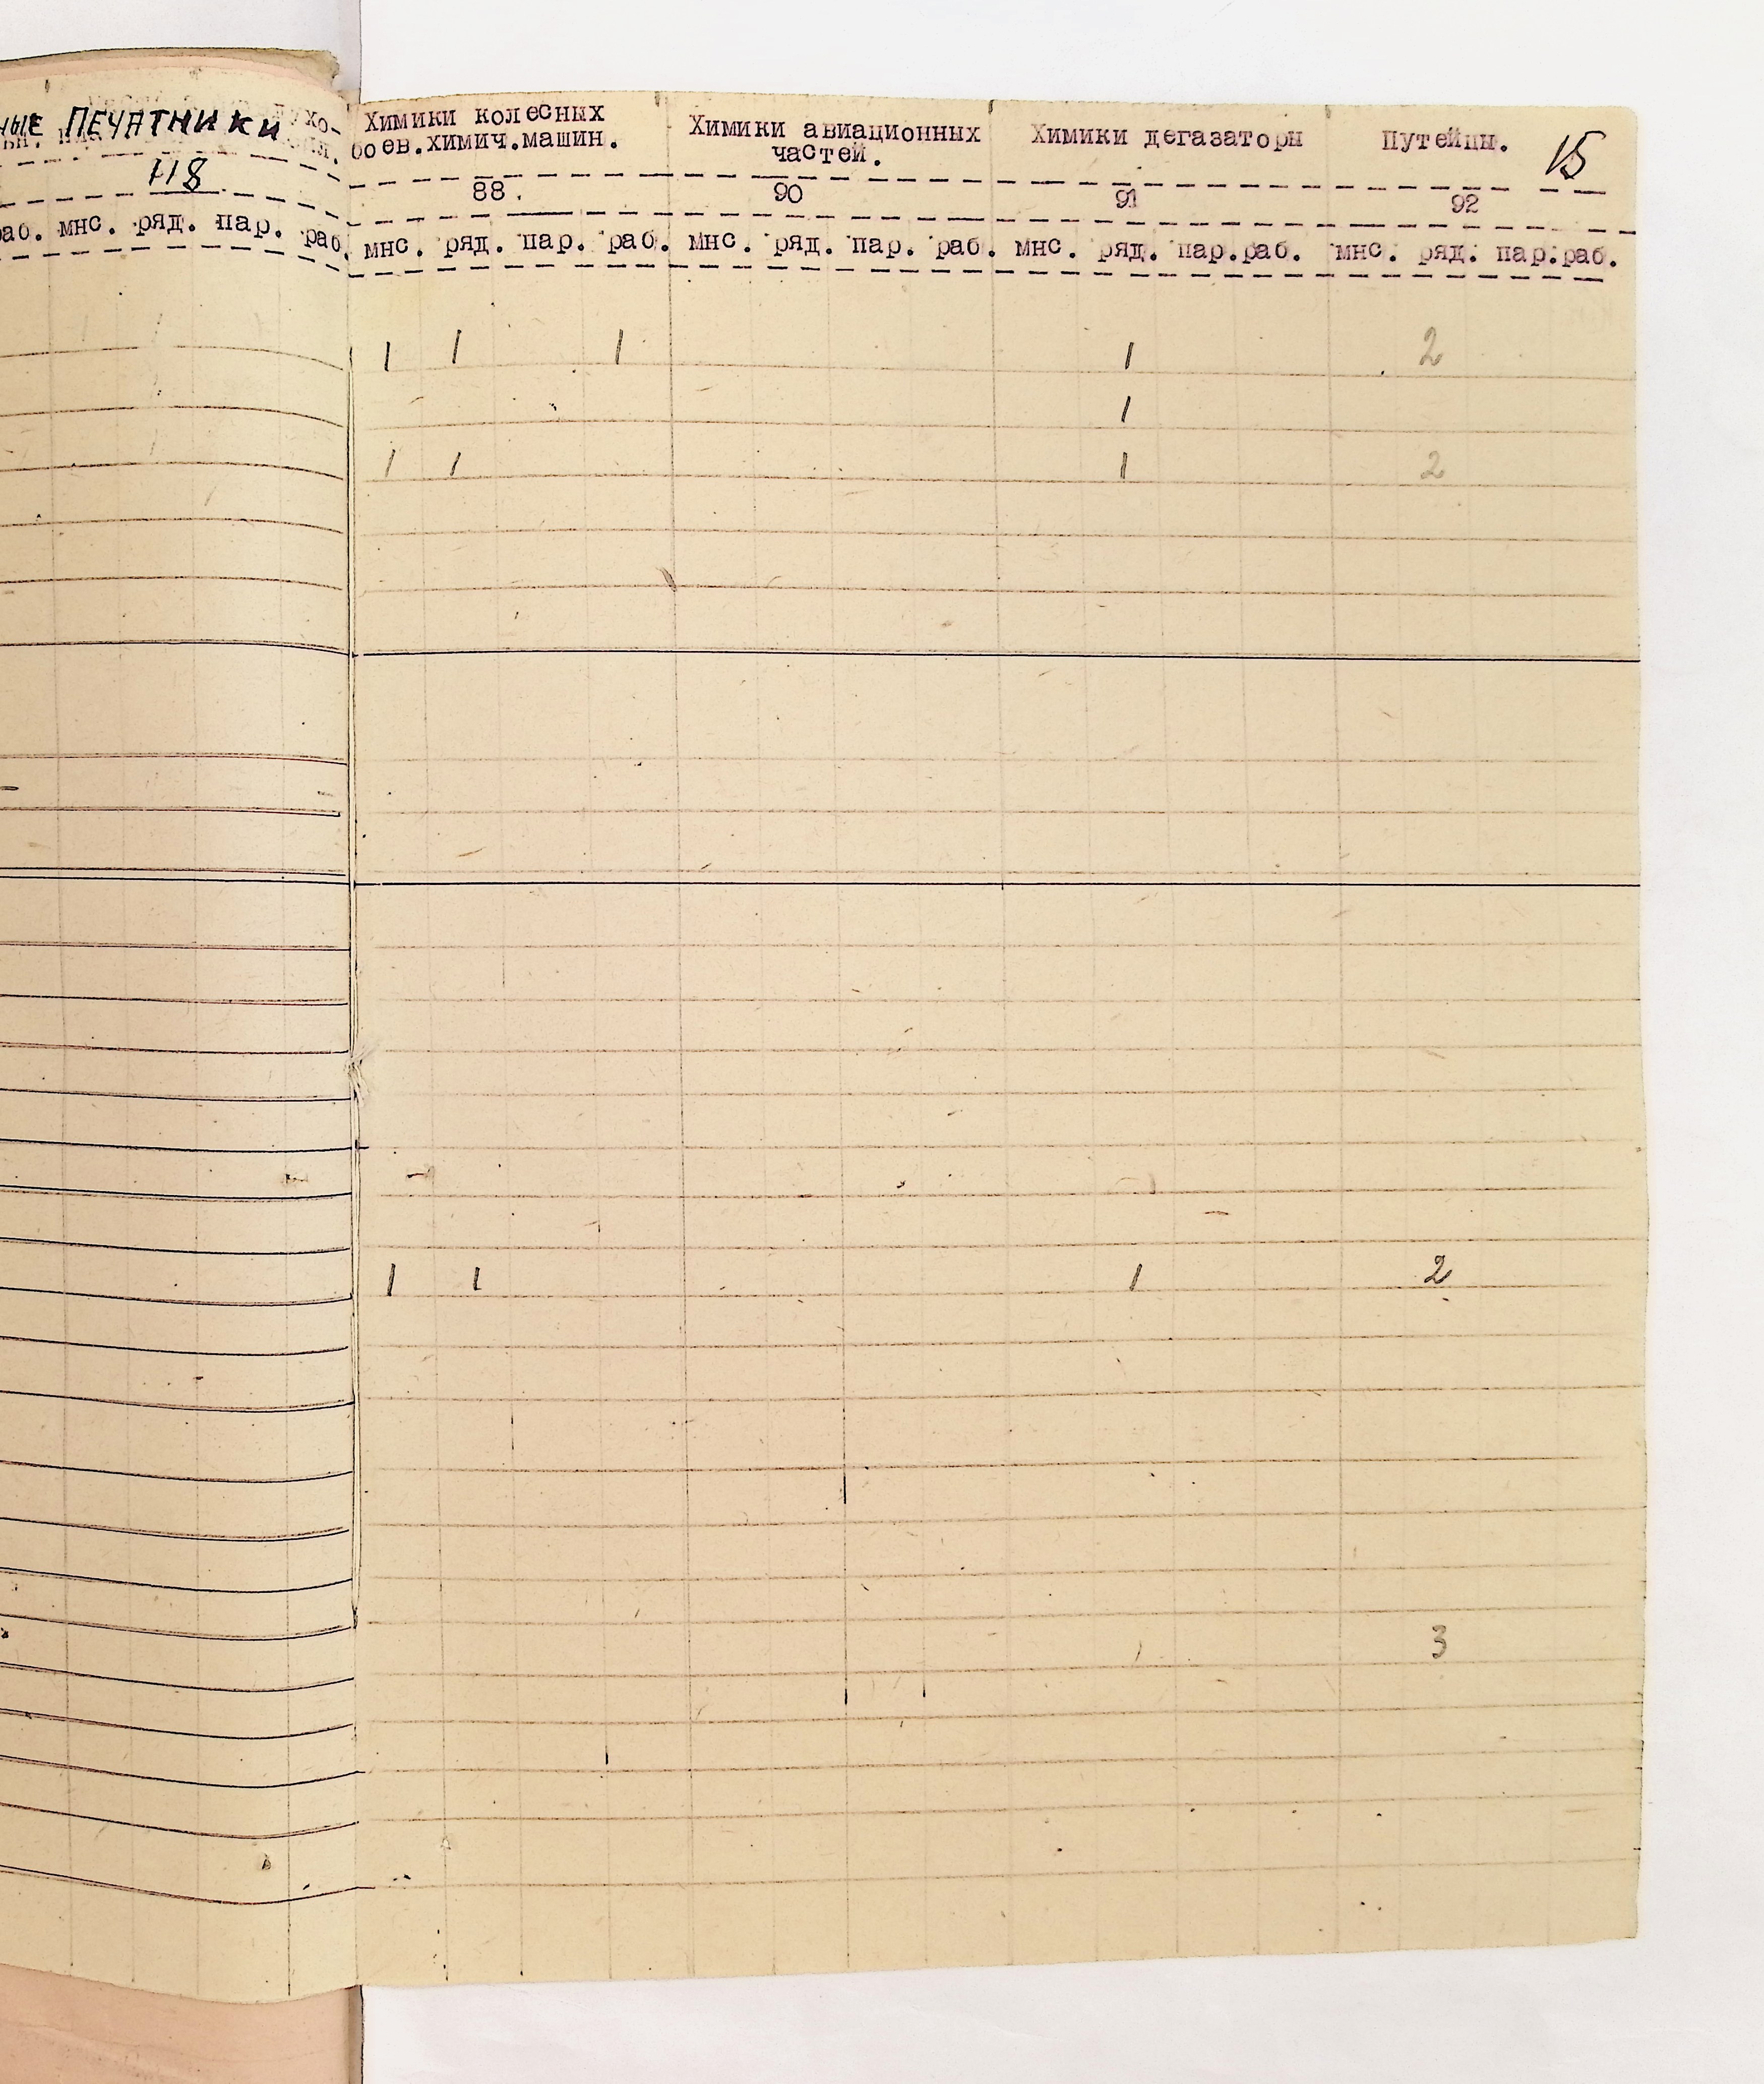 ные Печатники
118
раб. мнс. ряд. пар. раб.
Химики колесных боев.химич.машин. Химики авиационных частей. Химики дегазаторы Путейцы. 15
88. 90 91 92
мнс. ряд. пар. раб. мнс. ряд. пар. раб. мнс. ряд. пар.раб. мнс. ряд. пар.раб.
1 1 1 1 2
1
1 1 1 2
1 1 1 2
3